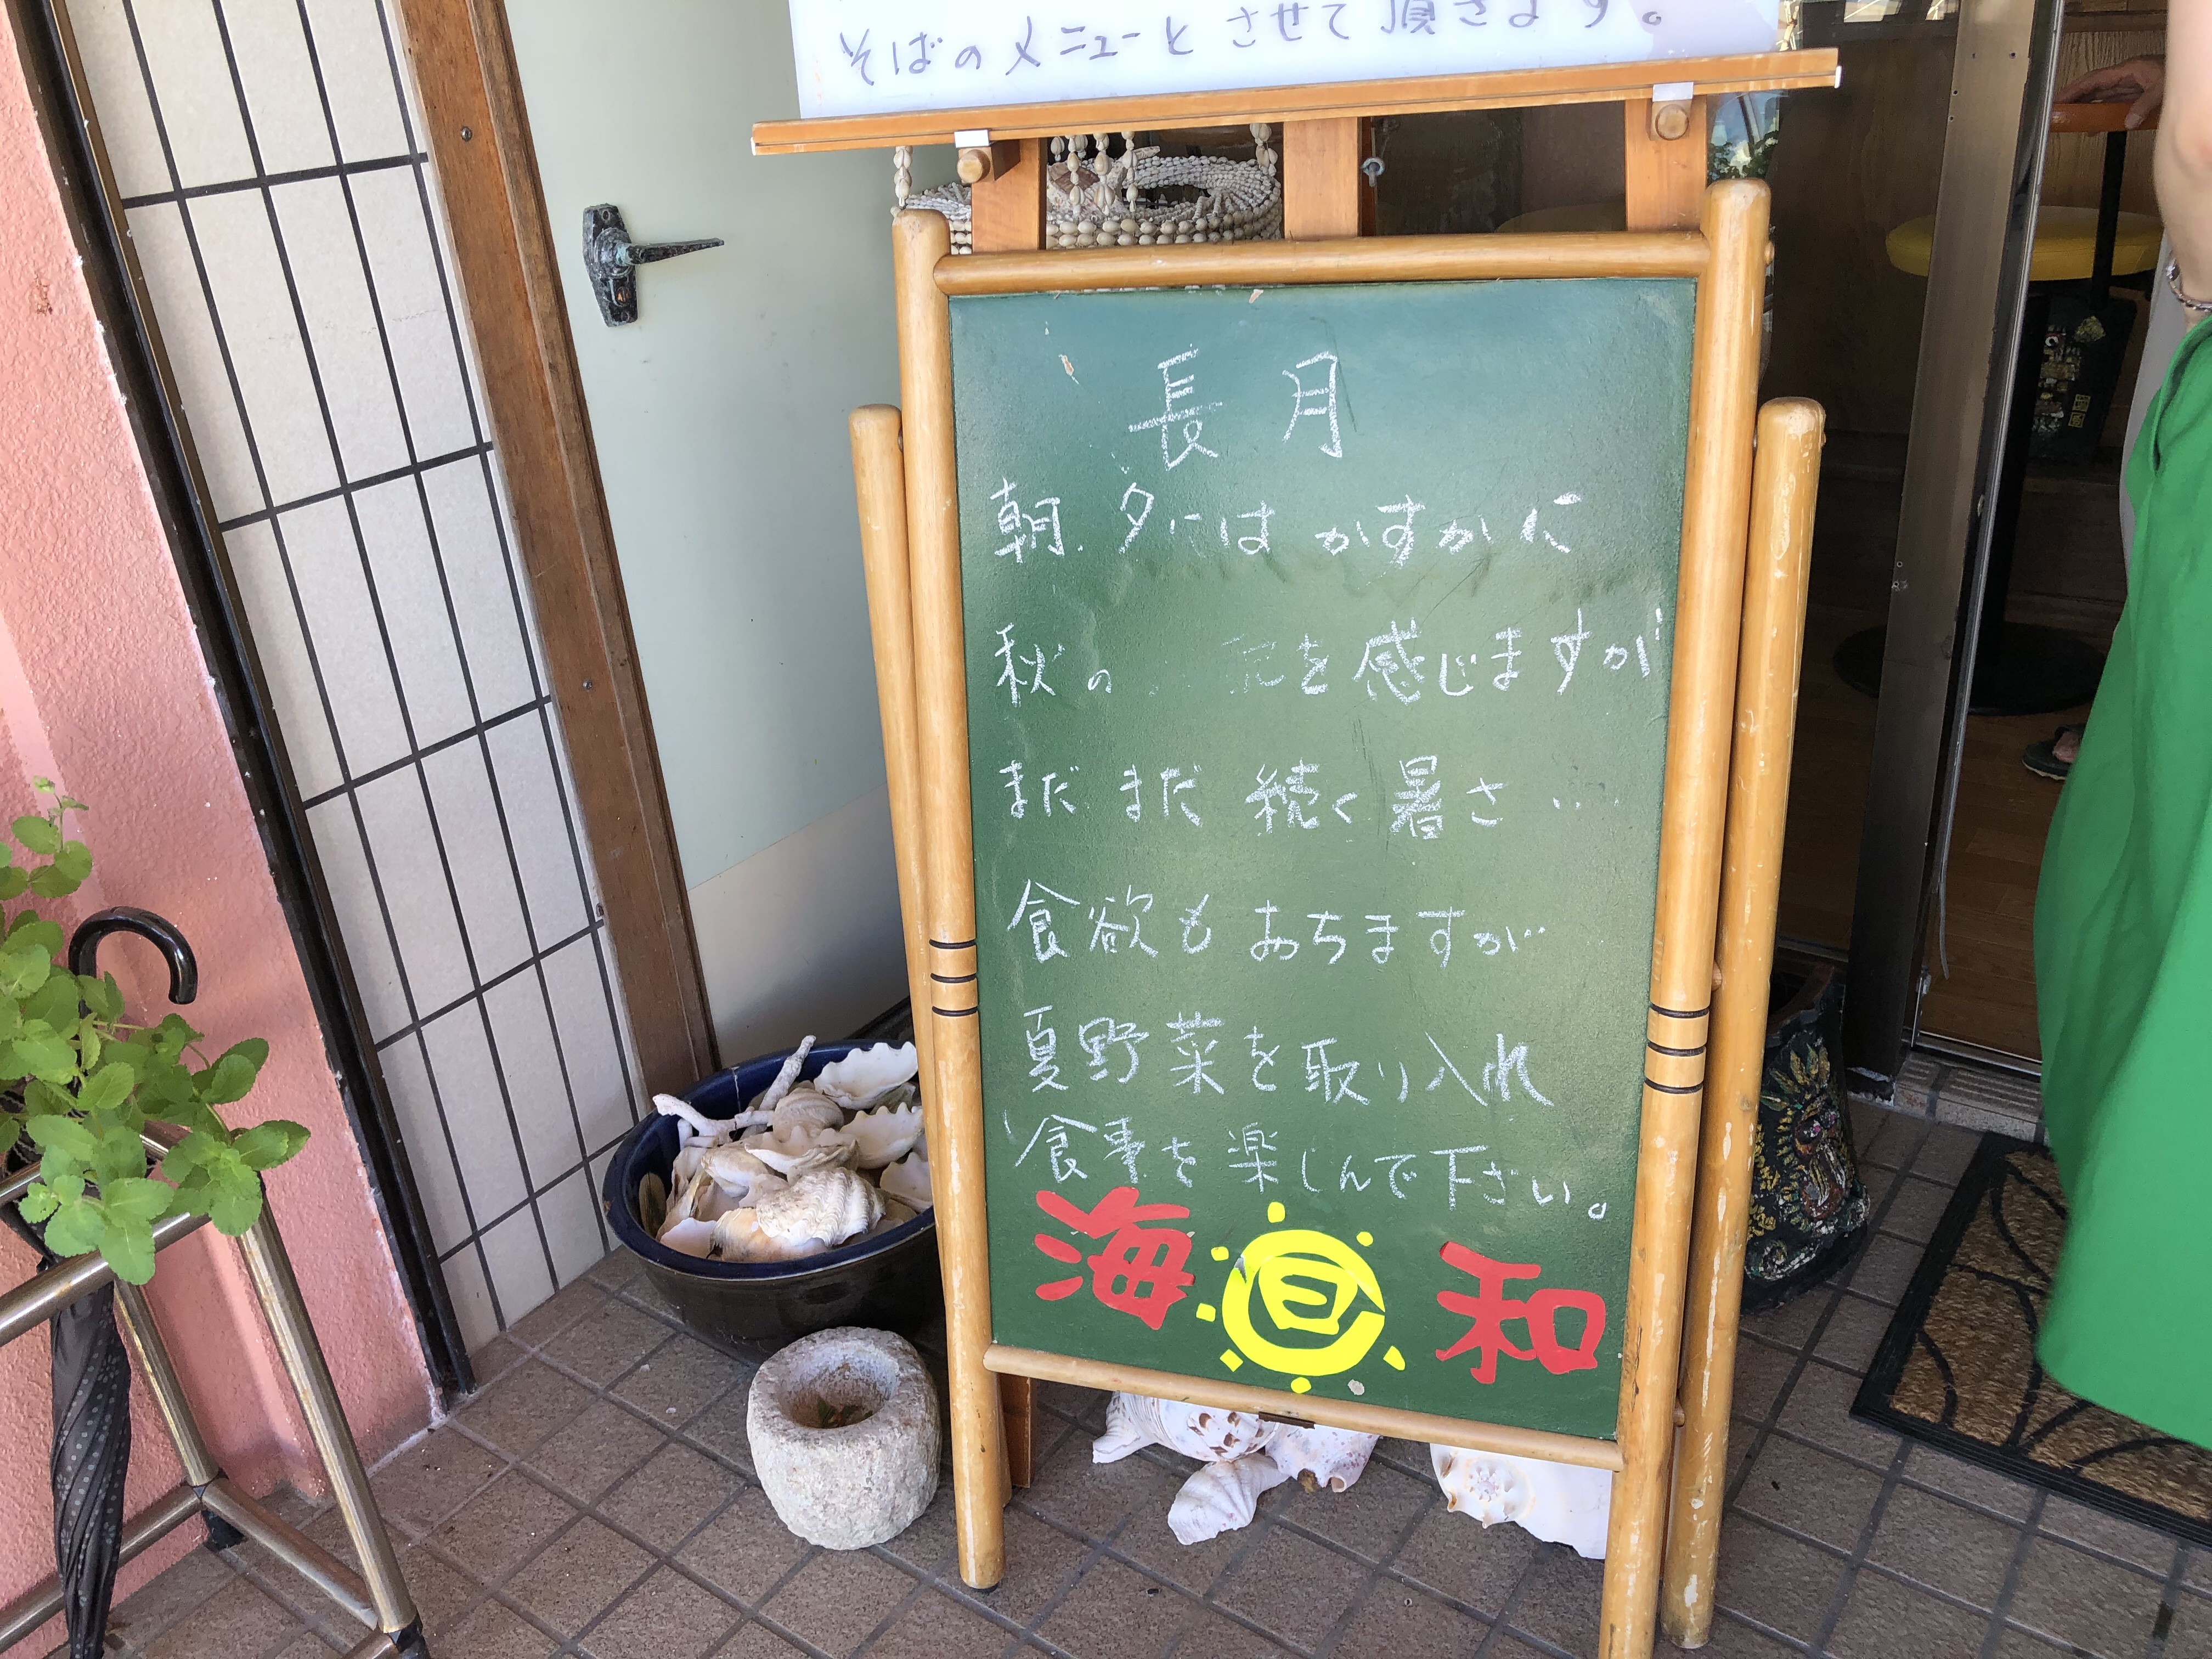 そばのメニューとさせて頂きます。
長月
朝.夕にはかすかに
秋の 気を感じますが
まだまだ続く暑さ…
食欲もおちますが…
夏野菜を取り入れ
食事を楽しんで下さい。
海 和